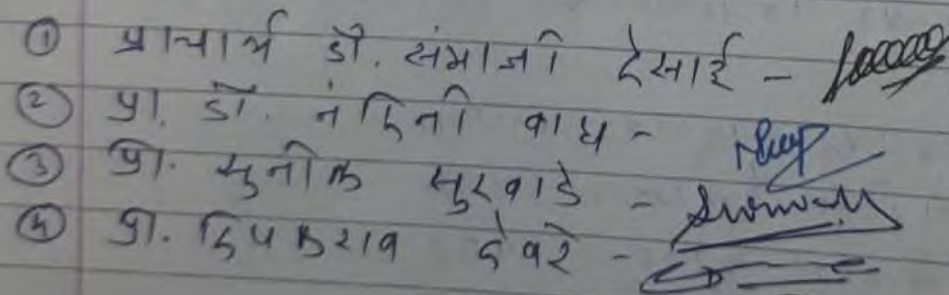 ① प्राचार्य डॉ. संभाजी देसाई -
② प्रा. डॉ. नंदिनी वाघ -
③ प्रा. सुनील सुरवाडे -
④ प्रा. दिपकराव देवरे -